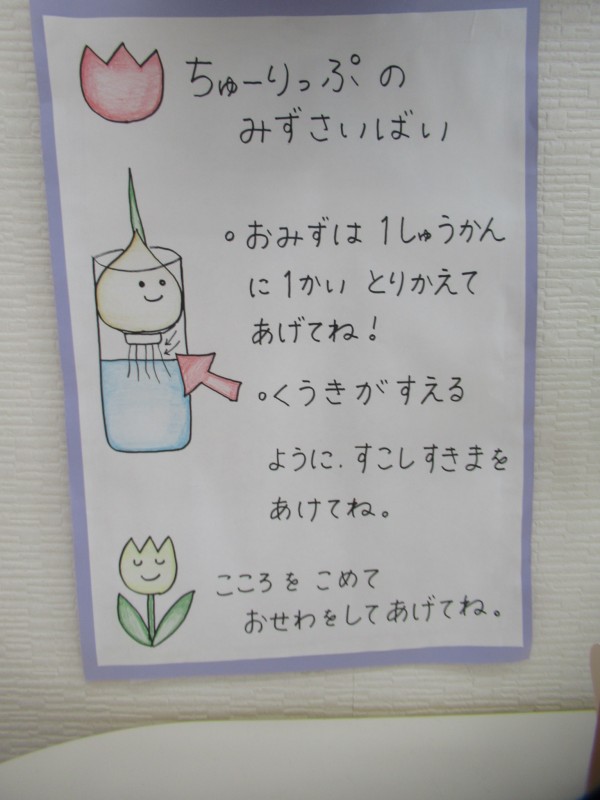 ちゅーりっぷの
みずさいばい
。おみずは 1しゅうかん
に1かい とりかえて
あげてね!
。くうきがすえる
ように、すこしすきまを
あけてね。
こころをこめて
おせわをしてあげてね。